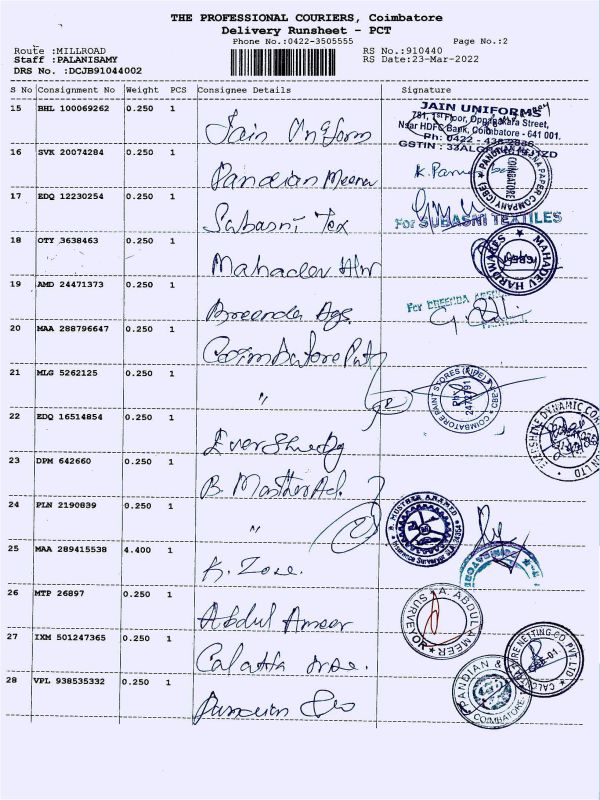 THE PROFESSIONAL COURIERS, Coimbatore
Delivery Runsheet - PCT
Phone No.:0422-3505555 Page No.:2
Route :MILLROAD RS No.:910440
Staff :PALANISAMY RS Date:23-Mar-2022
DRS No. :DCJB91044002
S No Consignment No Weight PCS Consignee Details Signature
15 BHL 100069262 0.250 1
Jain Uniform
JAIN UNIFORMS
781, 1st Floor, Oppanakara Street,
Near HDFC Bank, Coimbatore - 641 001.
Ph: 0422 -
GSTIN : 33AL
16 SVK 20074284 0.250 1
Pandian Meena
PANDIAN MEENA PAPER COMPANY (CBE)
COIMBATORE
17 EDQ 12230254 0.250 1
Subasni Tex
For SUBASNI TEXTILES
18 OTY 3638463 0.250 1
Mahadev H/w
MAHADEV HARDWARES
19 AMD 24471373 0.250 1
Breenda Age
For BREENDA
20 MAA 288796647 0.250 1
Coimbatore
21 MLG 5262125 0.250 1
"
COIMBATORE PAINT STORES (PIPE) CBE
Ph: 2472791
22 EDQ 16514854 0.250 1
EVERSHINE DYNAMIC
23 DPM 642660 0.250 1
B.
24 PLN 2190839 0.250 1
"
25 MAA 289415538 4.400 1
K. Zose.
26 MTP 26897 0.250 1
Abdul Ameer
A. ABDUL AMEER
SURVEYOR
27 IXM 501247365 0.250 1
NETTING CO. PVT LTD
28 VPL 938535332 0.250 1
PANDIAN &
COIMBATORE